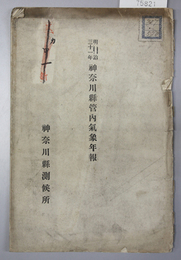 15821
明治
三十二年
神奈川縣管内氣象年報
神奈川縣測候所